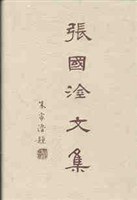 張國淦文集
朱家溍題